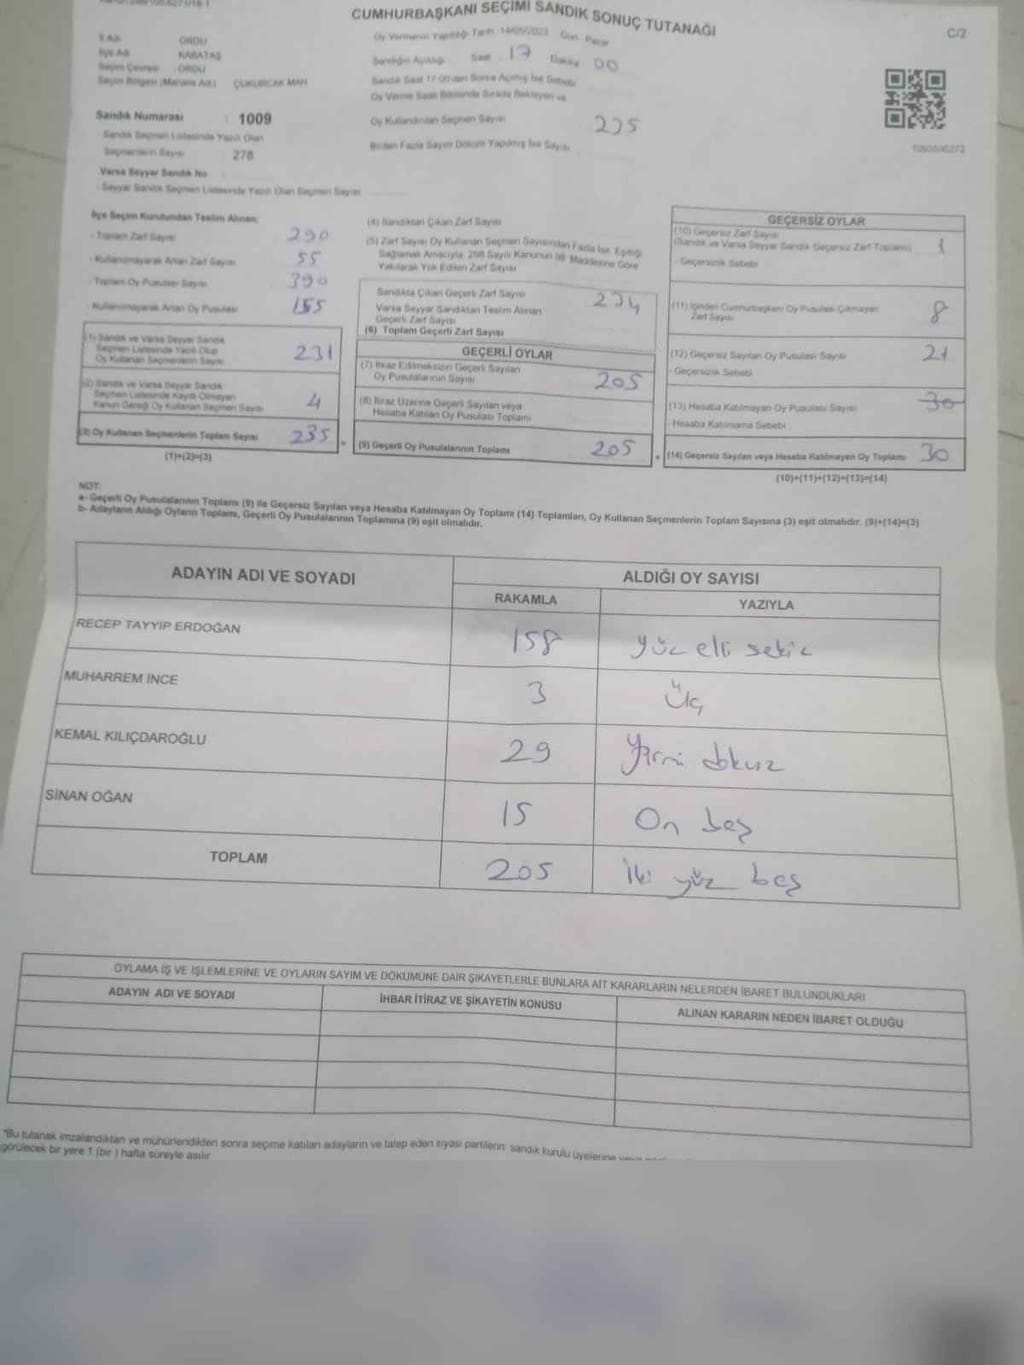 CUMHURBAŞKANI SEÇİMİ SANDIK SONUÇ TUTANAĞI
C/2
İl Adı : ORDU
İlçe Adı : KABATAŞ
Seçim Çevresi : ORDU
Seçim Bölgesi (Mahalle Adı) : ÇUKURCAK MAH
Sandık Numarası : 1009
Sandık Seçmen Listesinde Yazılı Olan
Seçmenlerin Sayısı : 278
Varsa Seyyar Sandık No :
Seyyar Sandık Seçmen Listesinde Yazılı Olan Seçmen Sayısı
Oy Vermenin Yapıldığı Tarih 14/05/2023 Gün Pazar
Sandığın Açıldığı Saat 17 Dakika 00
Sandık Saat 17.00'den Sonra Açılmış İse Sebebi
Oy Verme Saati Bitiminde Sırada Bekleyen ve
Oy Kullandırılan Seçmen Sayısı 235
Birden Fazla Sayım Döküm Yapılmış İse Sayısı
İlçe Seçim Kurulundan Teslim Alınan;
- Toplam Zarf Sayısı 290
- Kullanılmayarak Artan Zarf Sayısı 55
- Toplam Oy Pusulası Sayısı 390
- Kullanılmayarak Artan Oy Pusulası 155
(1) Sandık ve Varsa Seyyar Sandık
Seçmen Listesinde Yazılı Olup
Oy Kullanan Seçmenlerin Sayısı 231
(2) Sandık ve Varsa Seyyar Sandık
Seçmen Listesinde Kayıtlı Olmayan
Kanun Gereği Oy Kullanan Seçmen Sayısı 4
(3) Oy Kullanan Seçmenlerin Toplam Sayısı 235
(1)+(2)=(3)
(4) Sandıktan Çıkan Zarf Sayısı
(5) Zarf Sayısı Oy Kullanan Seçmen Sayısından Fazla İse, Eşitliği
Sağlamak Amacıyla, 298 Sayılı Kanunun 98. Maddesine Göre
Yakılarak Yok Edilen Zarf Sayısı
Sandıkta Çıkan Geçerli Zarf Sayısı 234
Varsa Seyyar Sandıktan Teslim Alınan
Geçerli Zarf Sayısı
(6) Toplam Geçerli Zarf Sayısı
GEÇERLİ OYLAR
(7) İtiraz Edilmeksizin Geçerli Sayılan
Oy Pusulalarının Sayısı 205
(8) İtiraz Üzerine Geçerli Sayılan veya
Hesaba Katılan Oy Pusulası Toplamı
(9) Geçerli Oy Pusulalarının Toplamı 205
GEÇERSİZ OYLAR
(10) Geçersiz Zarf Sayısı
(Sandık ve Varsa Seyyar Sandık Geçersiz Zarf Toplamı) 1
- Geçersizlik Sebebi
(11) İçinden Cumhurbaşkanı Oy Pusulası Çıkmayan
Zarf Sayısı 8
(12) Geçersiz Sayılan Oy Pusulası Sayısı 21
- Geçersizlik Sebebi
(13) Hesaba Katılmayan Oy Pusulası Sayısı 30
- Hesaba Katılmama Sebebi
(14) Geçersiz Sayılan veya Hesaba Katılmayan Oy Toplamı 30
(10)+(11)+(12)+(13)=(14)
NOT:
a- Geçerli Oy Pusulalarının Toplamı (9) ile Geçersiz Sayılan veya Hesaba Katılmayan Oy Toplamı (14) Toplamları, Oy Kullanan Seçmenlerin Toplam Sayısına (3) eşit olmalıdır. (9)+(14)=(3)
b- Adayların Aldığı Oyların Toplamı, Geçerli Oy Pusulalarının Toplamına (9) eşit olmalıdır.
ADAYIN ADI VE SOYADI
ALDIĞI OY SAYISI
RAKAMLA YAZIYLA
RECEP TAYYİP ERDOĞAN 158 yüz elli sekiz
MUHARREM İNCE 3 Üç
KEMAL KILIÇDAROĞLU 29 Yirmi dokuz
SİNAN OĞAN 15 On beş
TOPLAM 205 İki yüz beş
OYLAMA İŞ VE İŞLEMLERİNE VE OYLARIN SAYIM VE DÖKÜMÜNE DAİR ŞİKAYETLERLE BUNLARA AİT KARARLARIN NELERDEN İBARET BULUNDUKLARI
ADAYIN ADI VE SOYADI İHBAR İTİRAZ VE ŞİKAYETİN KONUSU ALINAN KARARIN NEDEN İBARET OLDUĞU
*Bu tutanak imzalandıktan ve mühürlendikten sonra seçime katılan adayların ve talep eden siyasi partilerin sandık kurulu üyelerine
görülecek bir yere 1 (bir) hafta süreyle asılır.